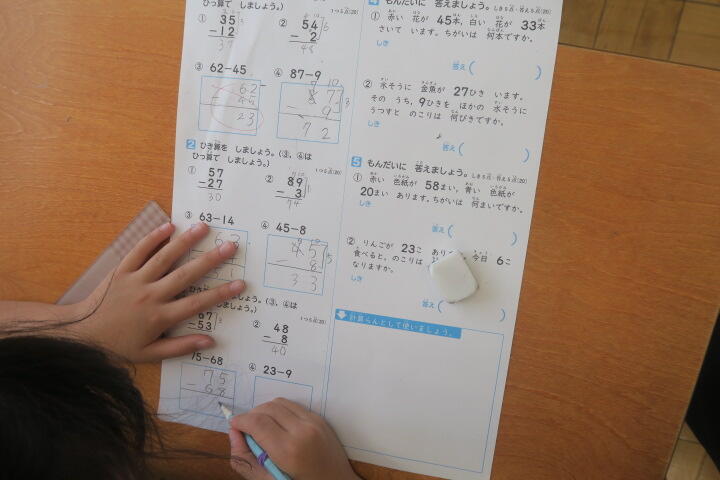 ひっ算で しましょう。）
1つ5点(20)
①
35
－12
②
54
－ 2
48
③ 62－45
62
23
④ 87－9
9
72
2 ひき算を しましょう。（③、④は
ひっ算で しましょう。）
1つ5点(20)
①
57
－27
30
②
89
－ 3
74
③ 63－14
63
④ 45－8
45
－ 8
33
しましょう。（③、④は
しましょう。）
1つ5点(20)
67
－53
②
48
－ 8
40
75－68
75
－68
④ 23－9
4 もんだいに 答えましょう。しき5点・答え5点(20)
① 赤い 花が 45本、白い 花が 33本
さいて います。ちがいは 何本ですか。
しき
答え（ ）
② 水そうに 金魚が 27ひき います。
その うち、9ひきを ほかの 水そうに
うつすと のこりは 何びきですか。
しき
答え（ ）
5 もんだいに 答えましょう。しき5点・答え5点(20)
① 赤い 色紙が 58まい、青い 色紙が
20まい あります。ちがいは 何まいですか。
しき
答え（ ）
② りんごが 23こ あり 今日 6こ
食べると、のこりは
なりますか。
しき
答え（ ）
計算らんとして使いましょう。